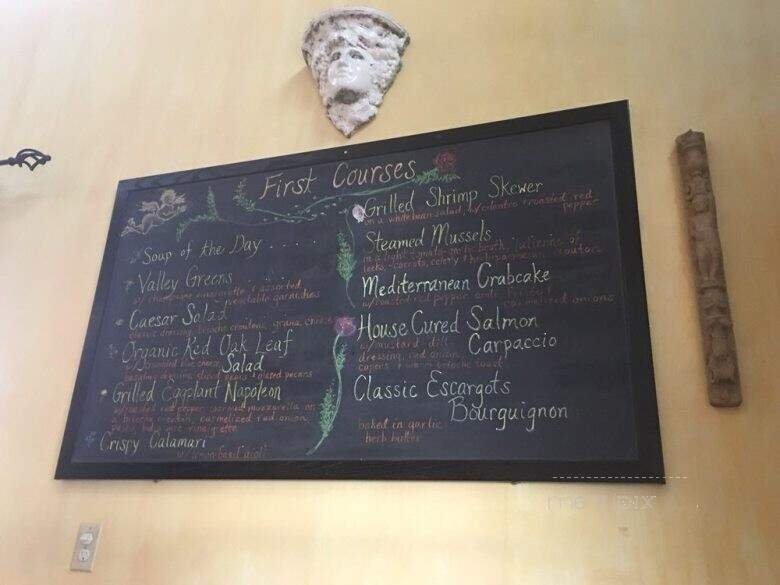 First Courses
Soup of the Day .....
Valley Greens
w/ champagne vinaigrette & assorted
vegetable garnishes
Caesar Salad
classic dressing, brioche croutons, grana cheese
Organic Red Oak Leaf
Salad
w/ crumbled blue cheese
sliced pears & glazed pecans
Grilled Eggplant Napoleon
w/ roasted red pepper, mozzarella on
a brioche crouton, carmelized red onion,
vinaigrette
Crispy Calamari
w/ lemon-basil aioli
Grilled Shrimp Skewer
on a white bean salad, w/ cilantro & roasted red
pepper
Steamed Mussels
in a light tomato broth, julienne of
leeks, carrots, celery & croutons
Mediterranean Crabcake
w/ roasted red pepper carmelized onions
House Cured Salmon
Carpaccio
w/ mustard-dill
dressing, red onion,
capers & warm brioche toast
Classic Escargots
Bourguignon
baked in garlic
herb butter